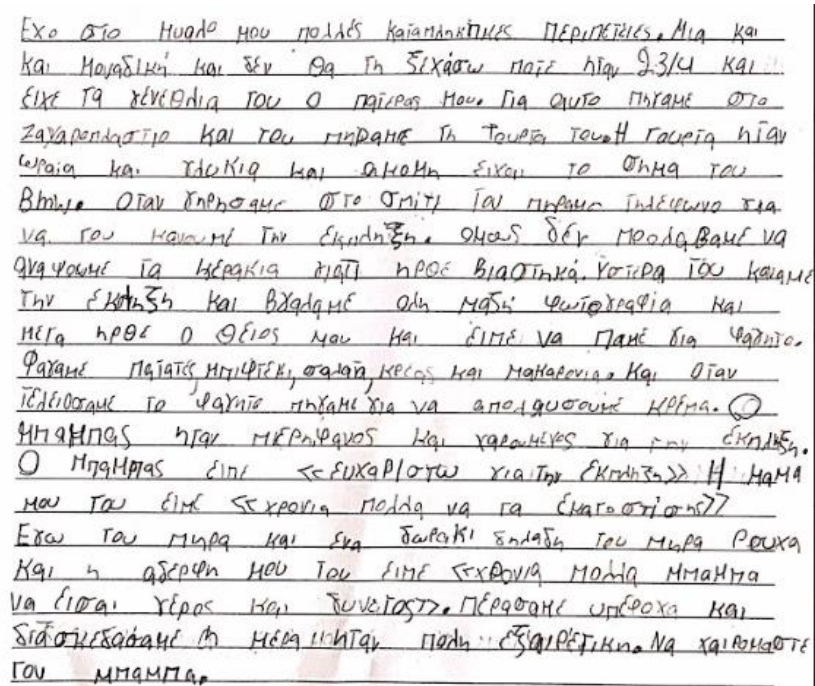 Εχο στο μυαλο μου πολλές καταπληκτικές περιπέτειες. Μια και
και μοναδική και δέν θα τη ξεχάσω ποτέ ηταν 23/4 και
είχε τα γένέθλια του ο πατέρας μου. Για αυτο πηγαμέ στο
Ζαχαροπλαστιο και του πηραμε τη τουρτα του. Η τουρτα ηταν
ωραια και γλυκια και ακομη ειχαι το σημα του
Bmw. Οταν γηρησαμε στο σπιτι του πηραμε τηλέφωνο για
να του κανουμέ την έκπληξη. ομως δέν προλαβαμέ να
αναψουμε τα κέρακια γιατι ηρθε βιαστηκά. Υστερα του καναμε
την έκπληξη και βγαλαμέ ολη μαζη φωτογραφια και
μετα ηρθε ο θέιος μου και ειπε να παμέ για φαγητο.
Φαγαμέ πατατές, μπιφτεκι, σαλατα, κρέας και μακαρονια. Και οταν
τέλειοσαμε το φαγητο πηγαμε για να απολαυσουμέ κρέμα. Ο
μπαμπας ηταν πέρηφανος και χαρουμένος για την έκπληξη.
Ο μπαμπας ειπε <<ευχαριστω για την έκπληξη>> Η μαμα
μου του ειπέ <<χρονια πολλα να τα έκατοστισης>>
Εγω του πηρα και ένα δωρακι δηλαδη του πηρα ρουχα
και η αδερφη μου του ειπε <<χρονια πολλα μπαμπα
να είσαι γέρος και δυνατος>>. Πέρασαμε υπέροχα και
διασκεδασαμέ η μέρα ηταν πολη έξαιρέτικη. Να χαιρομαστε
του μπαμπα.